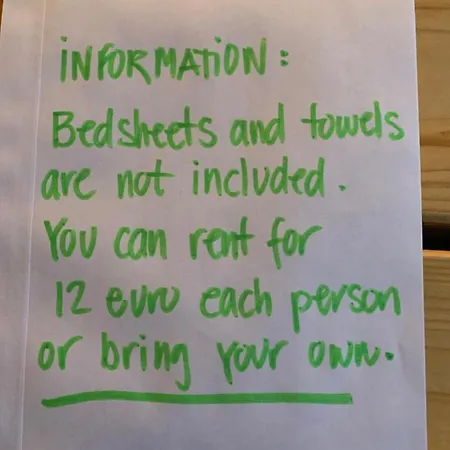 INFORMATION:
Bedsheets and towels
are not included.
You can rent for
12 euro each person
or bring your own.